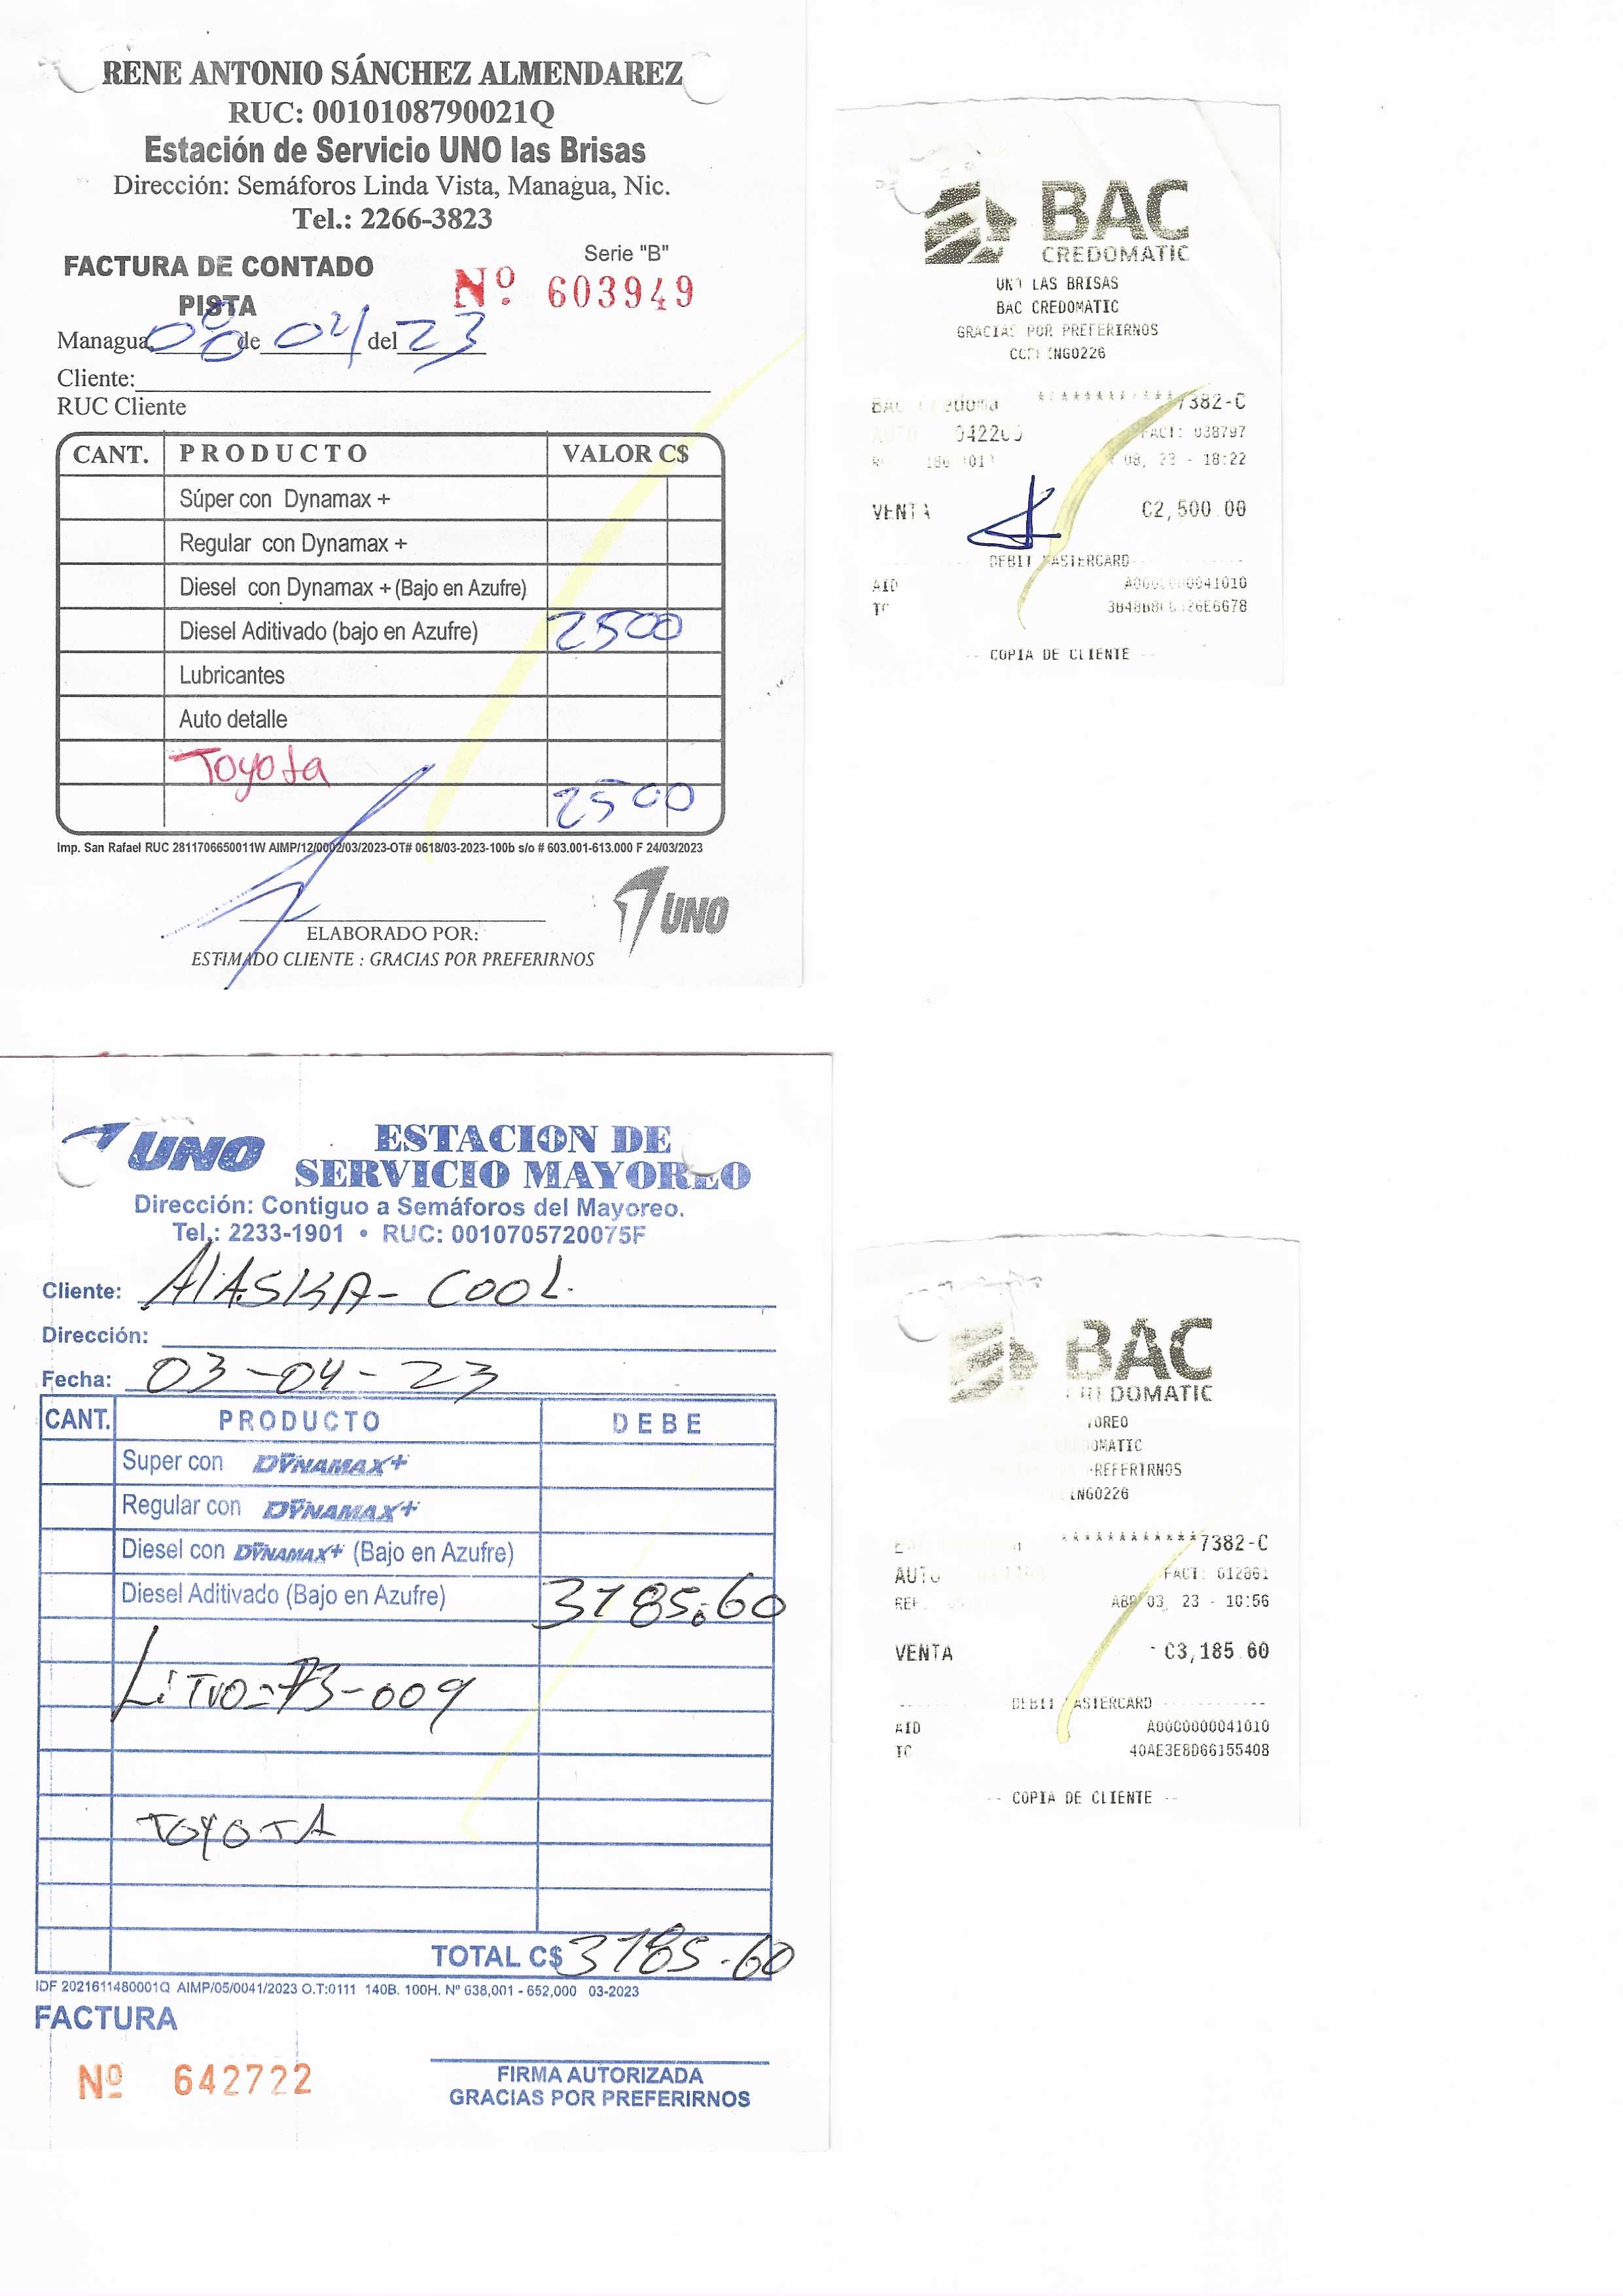 RENE ANTONIO SÁNCHEZ ALMENDAREZ
RUC: 0010108790021Q
Estación de Servicio UNO las Brisas
Dirección: Semáforos Linda Vista, Managua, Nic.
Tel.: 2266-3823
Serie "B"
FACTURA DE CONTADO
Nº. 603949
PISTA
Managua 08 de 04 del 23
Cliente:
RUC Cliente
CANT. PRODUCTO VALOR C$
Súper con Dynamax +
Regular con Dynamax +
Diesel con Dynamax + (Bajo en Azufre)
Diesel Aditivado (bajo en Azufre) 2500
Lubricantes
Auto detalle
Toyota
2500
Imp. San Rafael RUC 2811706650011W AIMP/12/0002/03/2023-OT# 0618/03-2023-100b s/o # 603.001-613.000 F 24/03/2023
UNO
ELABORADO POR:
ESTIMADO CLIENTE : GRACIAS POR PREFERIRNOS
BAC
CREDOMATIC
UNO LAS BRISAS
BAC CREDOMATIC
GRACIAS POR PREFERIRNOS
NG0226
BAC Credoma ************7382-C
AUTO FACT: 038797
08, 23 - 18:22
VENTA C2,500.00
DEBIT MASTERCARD
AID 41010
TC
-- COPIA DE CLIENTE --
UNO
ESTACION DE
SERVICIO MAYOREO
Dirección: Contiguo a Semáforos del Mayoreo.
Tel.: 2233-1901 • RUC: 0010705720075F
Cliente: ALASKA- COOL.
Dirección:
Fecha: 03-04-23
CANT. PRODUCTO DEBE
Super con DYNAMAX+
Regular con DYNAMAX+
Diesel con DYNAMAX+ (Bajo en Azufre)
Diesel Aditivado (Bajo en Azufre) 3185.60
LiTro=73-009
TOYOTA
TOTAL C$ 3185.60
IDF 2021611480001Q AIMP/05/0041/2023 O.T:0111 140B. 100H. Nº 638,001 - 652,000 03-2023
FACTURA
Nº 642722
FIRMA AUTORIZADA
GRACIAS POR PREFERIRNOS
BAC
CREDOMATIC
OREO
OMATIC
REFERIRNOS
NG0226
************7382-C
AUTO FACT: 012861
REF. ABR 03, 23 - 10:56
VENTA C3,185.60
DEBIT MASTERCARD
AID A0000000041010
TC 40AE3E8D66155408
-- COPIA DE CLIENTE --